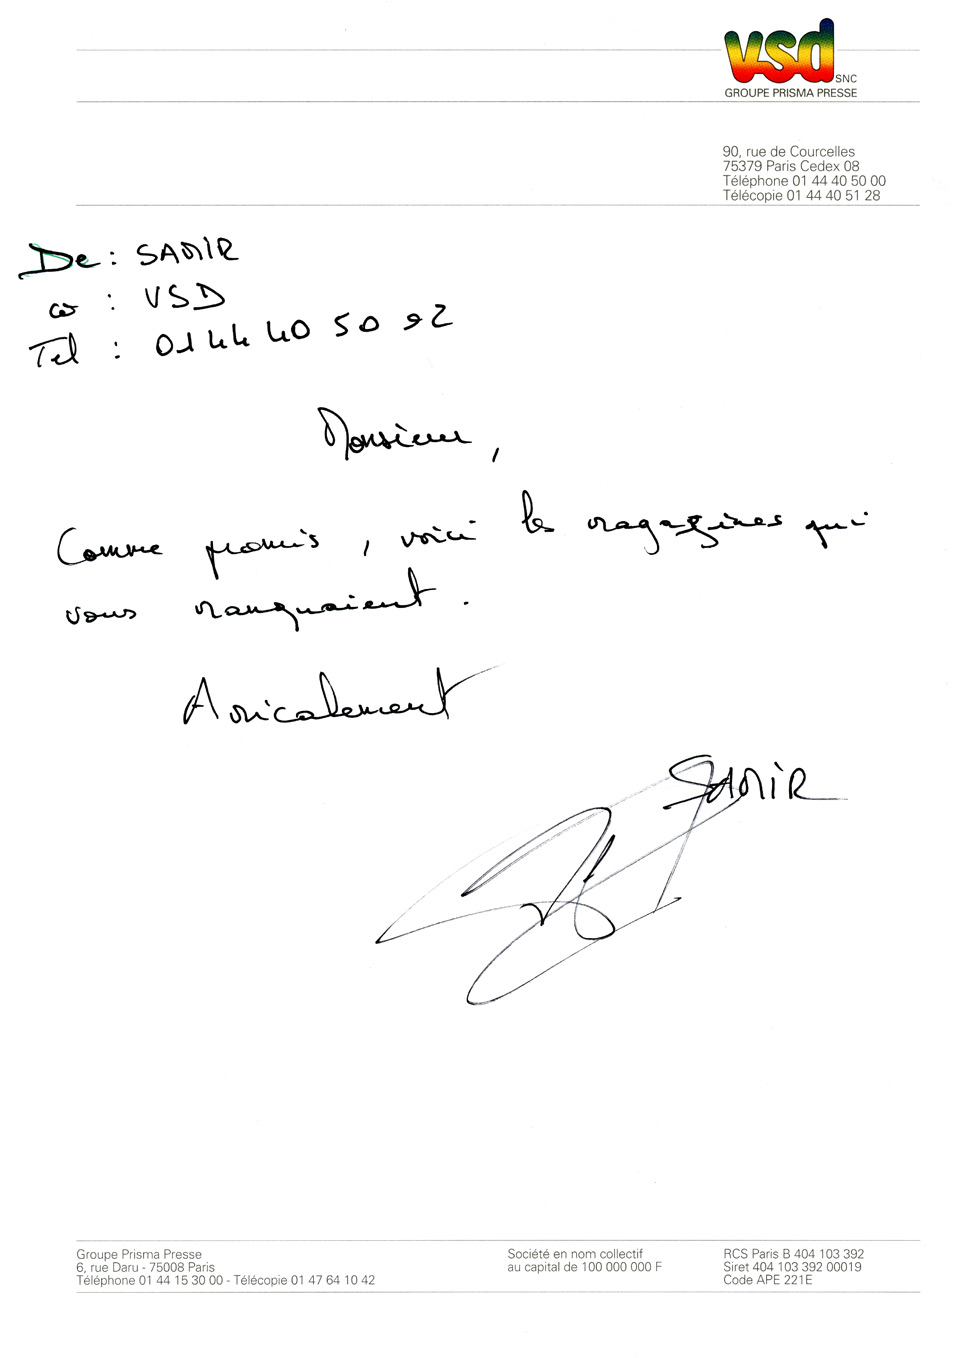 vsd SNC
GROUPE PRISMA PRESSE
90, rue de Courcelles
75379 Paris Cedex 08
Téléphone 01 44 40 50 00
Télécopie 01 44 40 51 28
De : SAMIR
: VSD
Tel : 01 44 40 50 92
Monsieur,
Comme promis, voici les magazines qui
vous manquaient.
Amicalement
SAMIR
Groupe Prisma Presse
6, rue Daru - 75008 Paris
Téléphone 01 44 15 30 00 - Télécopie 01 47 64 10 42
Société en nom collectif
au capital de 100 000 000 F
RCS Paris B 404 103 392
Siret 404 103 392 00019
Code APE 221E